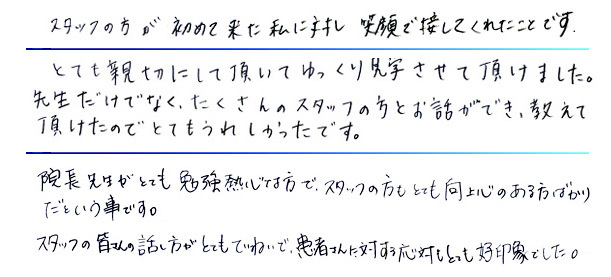 スタッフの方が初めて来た私に対し笑顔で接してくれたことです.
とても親切にして頂いてゆっくり見学させて頂けました。
先生だけでなく、たくさんのスタッフの方とお話ができ、教えて
頂けたのでとてもうれしかったです。
院長先生がとても勉強熱心な方で、スタッフの方もとても向上心のある方ばかり
だという事です。
スタッフの皆さんの話し方がとてもていねいで、患者さんに対する応対もとても好印象でした。